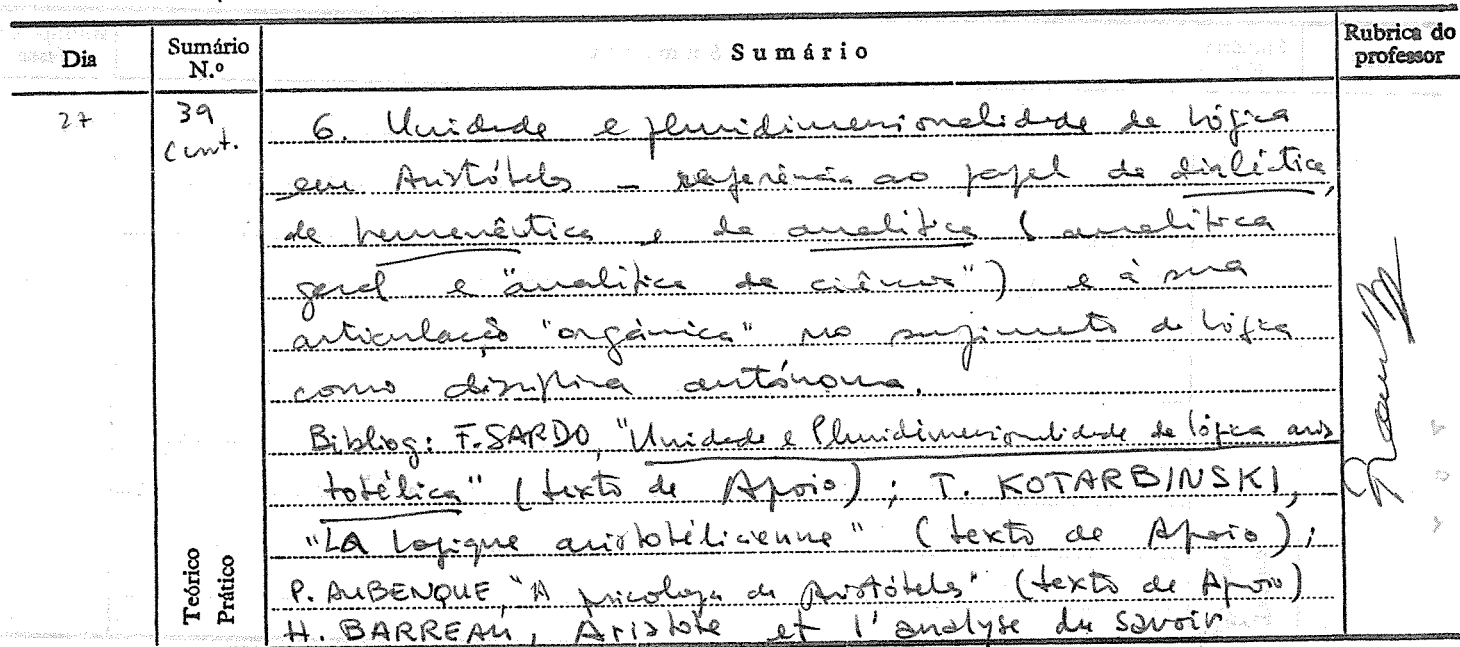 Dia
Sumário N.º
Sumário
Rubrica do professor
27
39 Cont.
6. Unidade e pluridimensionalidade da lógica
em Aristóteles – referência ao papel da dialéctica,
da hermenêutica e da analítica (analítica
geral e "analítica da ciência") e à sua
articulação "orgânica" no surgimento da lógica
como disciplina autónoma.
Bibliog: F. SARDO, "Unidade e Pluridimensionalidade da lógica aris
totélica" (texto de Apoio); T. KOTARBINSKI,
"LA logique aristotélicienne" (texto de Apoio);
P. AUBENQUE, "A psicologia de Aristóteles" (texto de Apoio)
H. BARREAU, Aristote et l'analyse du savoir
Teórico
Prático